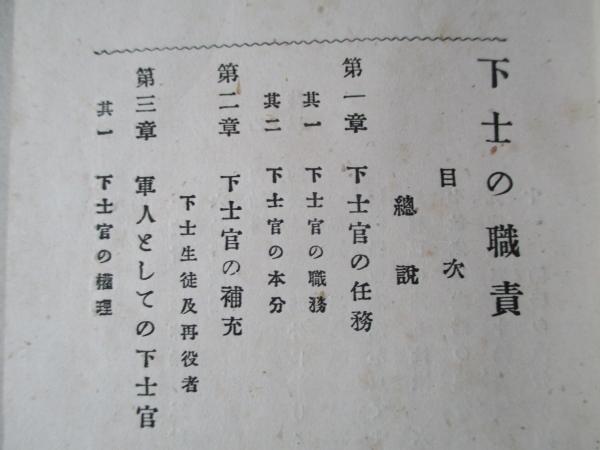 下士の職責
目次
總說
第一章 下士官の任務
其一 下士官の職務
其二 下士官の本分
第二章 下士官の補充
下士生徒及再役者
第三章 軍人としての下士官
其一 下士官の權理